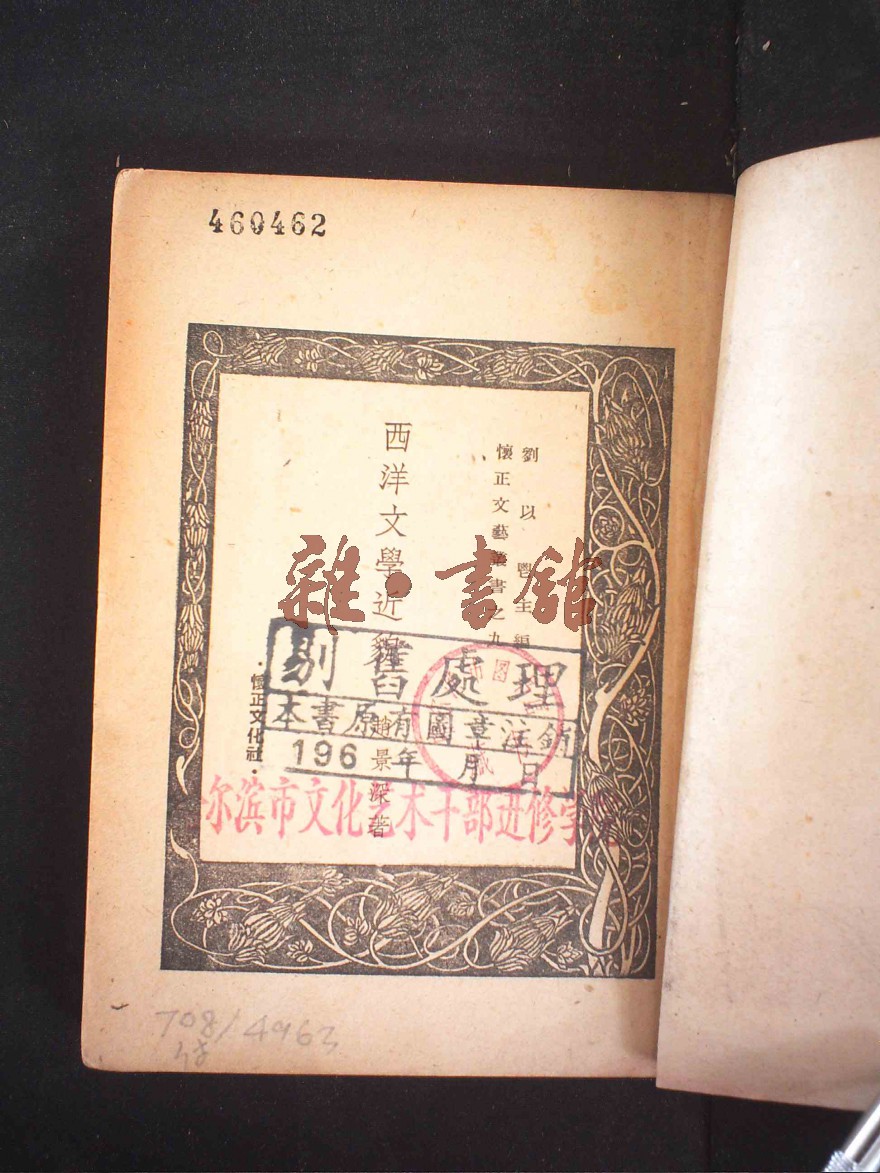 460462
劉以鬯主編
懷正文藝叢書之九
西洋文學近貌
趙景深著
·懷正文化社·
雜·書館
剔舊處理
本書原有圖章注銷
196 年 月 日
尔滨市文化艺术干部进修学
708/4963